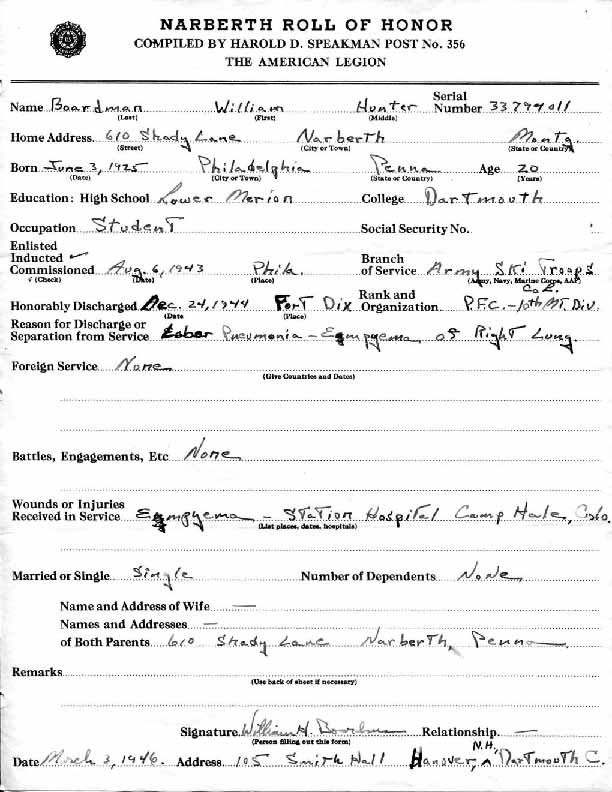 NARBERTH ROLL OF HONOR
COMPILED BY HAROLD D. SPEAKMAN POST No. 356
THE AMERICAN LEGION
Name Boardman William Hunter Serial Number 33794011
(Last) (First) (Middle)
Home Address 610 Shady Lane Narberth Montg.
(Street) (City or Town) (State or Country)
Born June 3, 1925 Philadelphia Penna Age 20
(Date) (City or Town) (State or Country) (Years)
Education: High School Lower Merion College Dartmouth
Occupation Student Social Security No.
Enlisted
Inducted ✓
Commissioned Aug. 6, 1943 Phila. Branch of Service Army Ski Troops
✓ (Check) (Date) (Place) (Army, Navy, Marine Corps, AAF)
Honorably Discharged Dec. 24, 1944 Fort Dix Rank and Organization P.F.C. – 10th Mt. Div.
(Date) (Place)
Reason for Discharge or
Separation from Service Lobar Pneumonia – Empyema of Right Lung.
Foreign Service None
(Give Countries and Dates)
Battles, Engagements, Etc None
Wounds or Injuries
Received in Service Empyema – Station Hospital Camp Hale, Colo.
(List places, dates, hospitals)
Married or Single Single Number of Dependents None
Name and Address of Wife —
Names and Addresses —
of Both Parents 610 Shady Lane Narberth, Penna
Remarks
(Use back of sheet if necessary)
Signature William H. Boardman Relationship —
(Person filling out this form)
Date March 3, 1946. Address 105 Smith Hall Hanover, N.H., Dartmouth C.